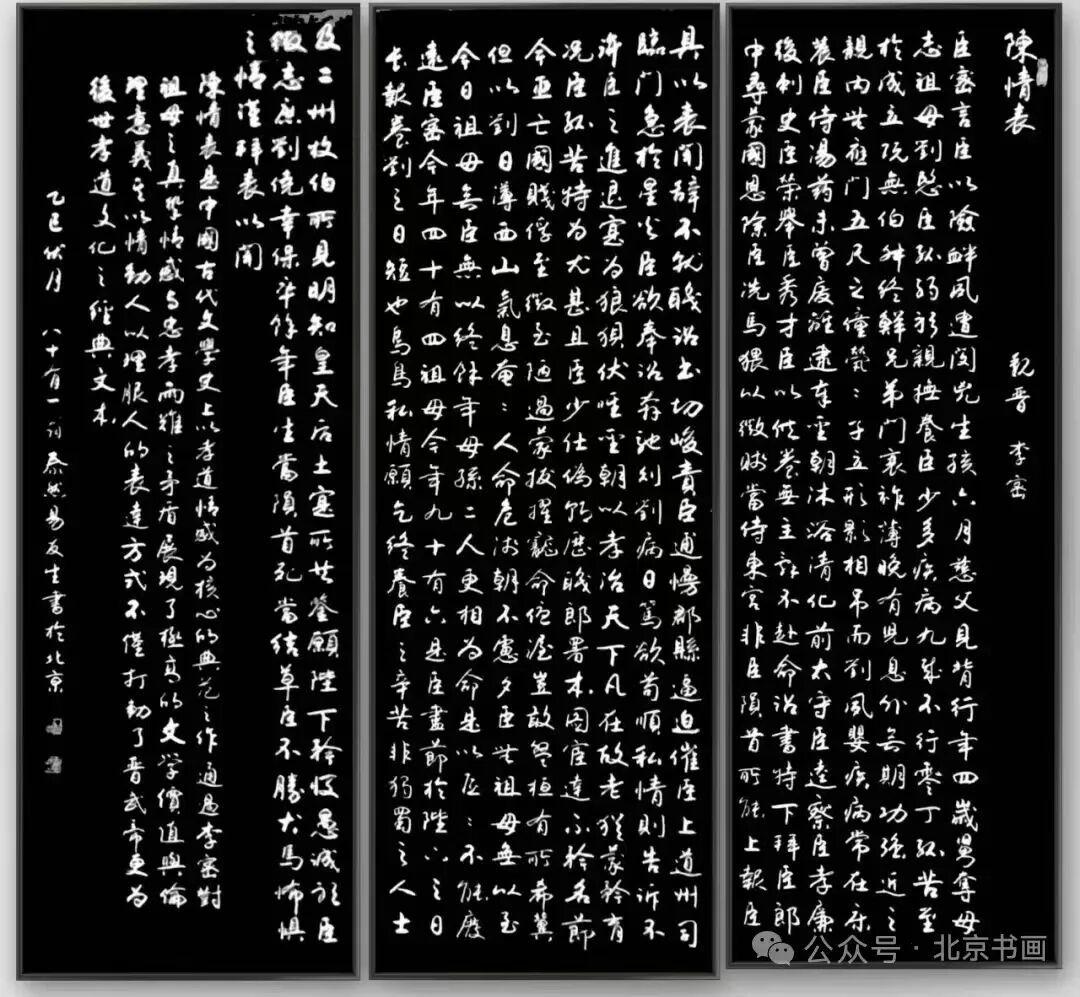 陳情表 魏晋 李密
臣密言臣以險釁夙遭閔凶生孩六月慈父見背行年四歲舅奪母
志祖母劉愍臣孤弱躬親撫養臣少多疾病九歲不行零丁孤苦至
於成立既無伯叔終鮮兄弟門衰祚薄晚有兒息外無期功强近之
親內無應門五尺之僮煢煢孑立形影相吊而劉夙嬰疾病常在床
蓐臣侍湯藥未曾廢離逮奉聖朝沐浴清化前太守臣逵察臣孝廉
後刺史臣榮舉臣秀才臣以供養無主辭不赴命詔書特下拜臣郎
中尋蒙國恩除臣洗馬猥以微賤當侍東宮非臣隕首所能上報臣
具以表聞辭不就職詔書切峻責臣逋慢郡縣逼迫催臣上道州司
臨門急於星火臣欲奉詔奔馳則劉病日篤欲苟順私情則告訴不
許臣之進退實為狼狽伏惟聖朝以孝治天下凡在故老猶蒙矜育
况臣孤苦特為尤甚且臣少仕偽朝歷職郎署本圖宦達不矜名節
今臣亡國賤俘至微至陋過蒙拔擢寵命優渥豈敢盤桓有所希冀
但以劉日薄西山氣息奄奄人命危淺朝不慮夕臣無祖母無以至
今日祖母無臣無以終餘年母孫二人更相為命是以區區不能廢
遠臣密今年四十有四祖母今年九十有六是臣盡節於陛下之日
長報養劉之日短也烏鳥私情願乞終養臣之辛苦非獨蜀之人士
及二州牧伯所見明知皇天后土實所共鑒願陛下矜愍愚誠聽臣
微志庶劉僥幸保卒餘年臣生當隕首死當結草臣不勝犬馬怖懼
之情謹拜表以聞
陳情表是中國古代文學史上以孝道情感為核心的典范之作通過李密對
祖母之真摯情感與忠孝兩難之矛盾展現了極高的文學價值與倫
理意義其以情動人以理服人的表達方式不僅打動了晋武帝更為
後世孝道文化之經典文本
乙巳伏月 八十有一 泰然易友生書於北京
公众号·北京书画